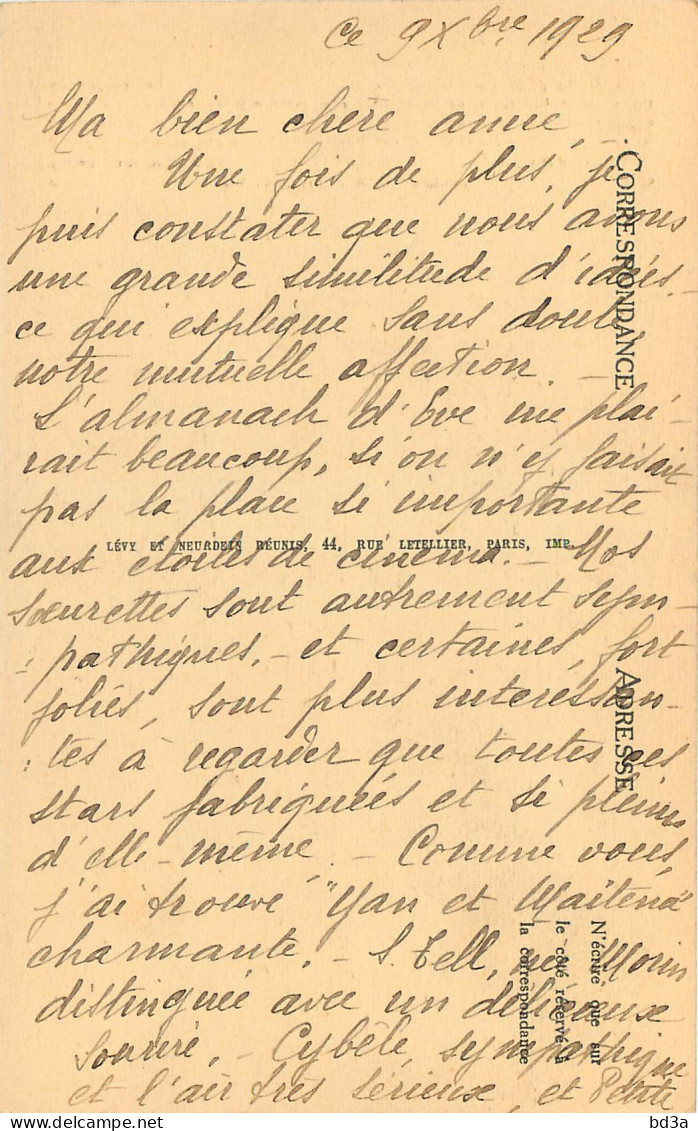 Ce 9 Xbre 1929
Ma bien chère amie,
Une fois de plus, je
puis constater que nous avons
une grande similitude d'idées.
ce qui explique sans doute
notre mutuelle affection. —
L'almanach d'Eve me plai-
rait beaucoup, si on n'y faisait
pas la place si importante
aux étoiles de cinéma. — Nos
sœurettes sont autrement sym-
pathiques, — et certaines, fort
jolies, sont plus intéressan-
tes à regarder que toutes ces
stars fabriquées et si pleines
d'elle-même. — Comme vous,
j'ai trouvé "Yan et Maïtena"
charmante. — S. Tell, née Morin
distinguée avec un délicieux
sourire, — Cybèle, sympathique
et l'air très sérieux, et Petite
CORRESPONDANCE
LÉVY ET NEURDEIN RÉUNIS, 44, RUE LETELLIER, PARIS, IMP.
ADRESSE
N'écrire que sur
le côté réservé à
la correspondance
© bd3a
www.delcampe.net